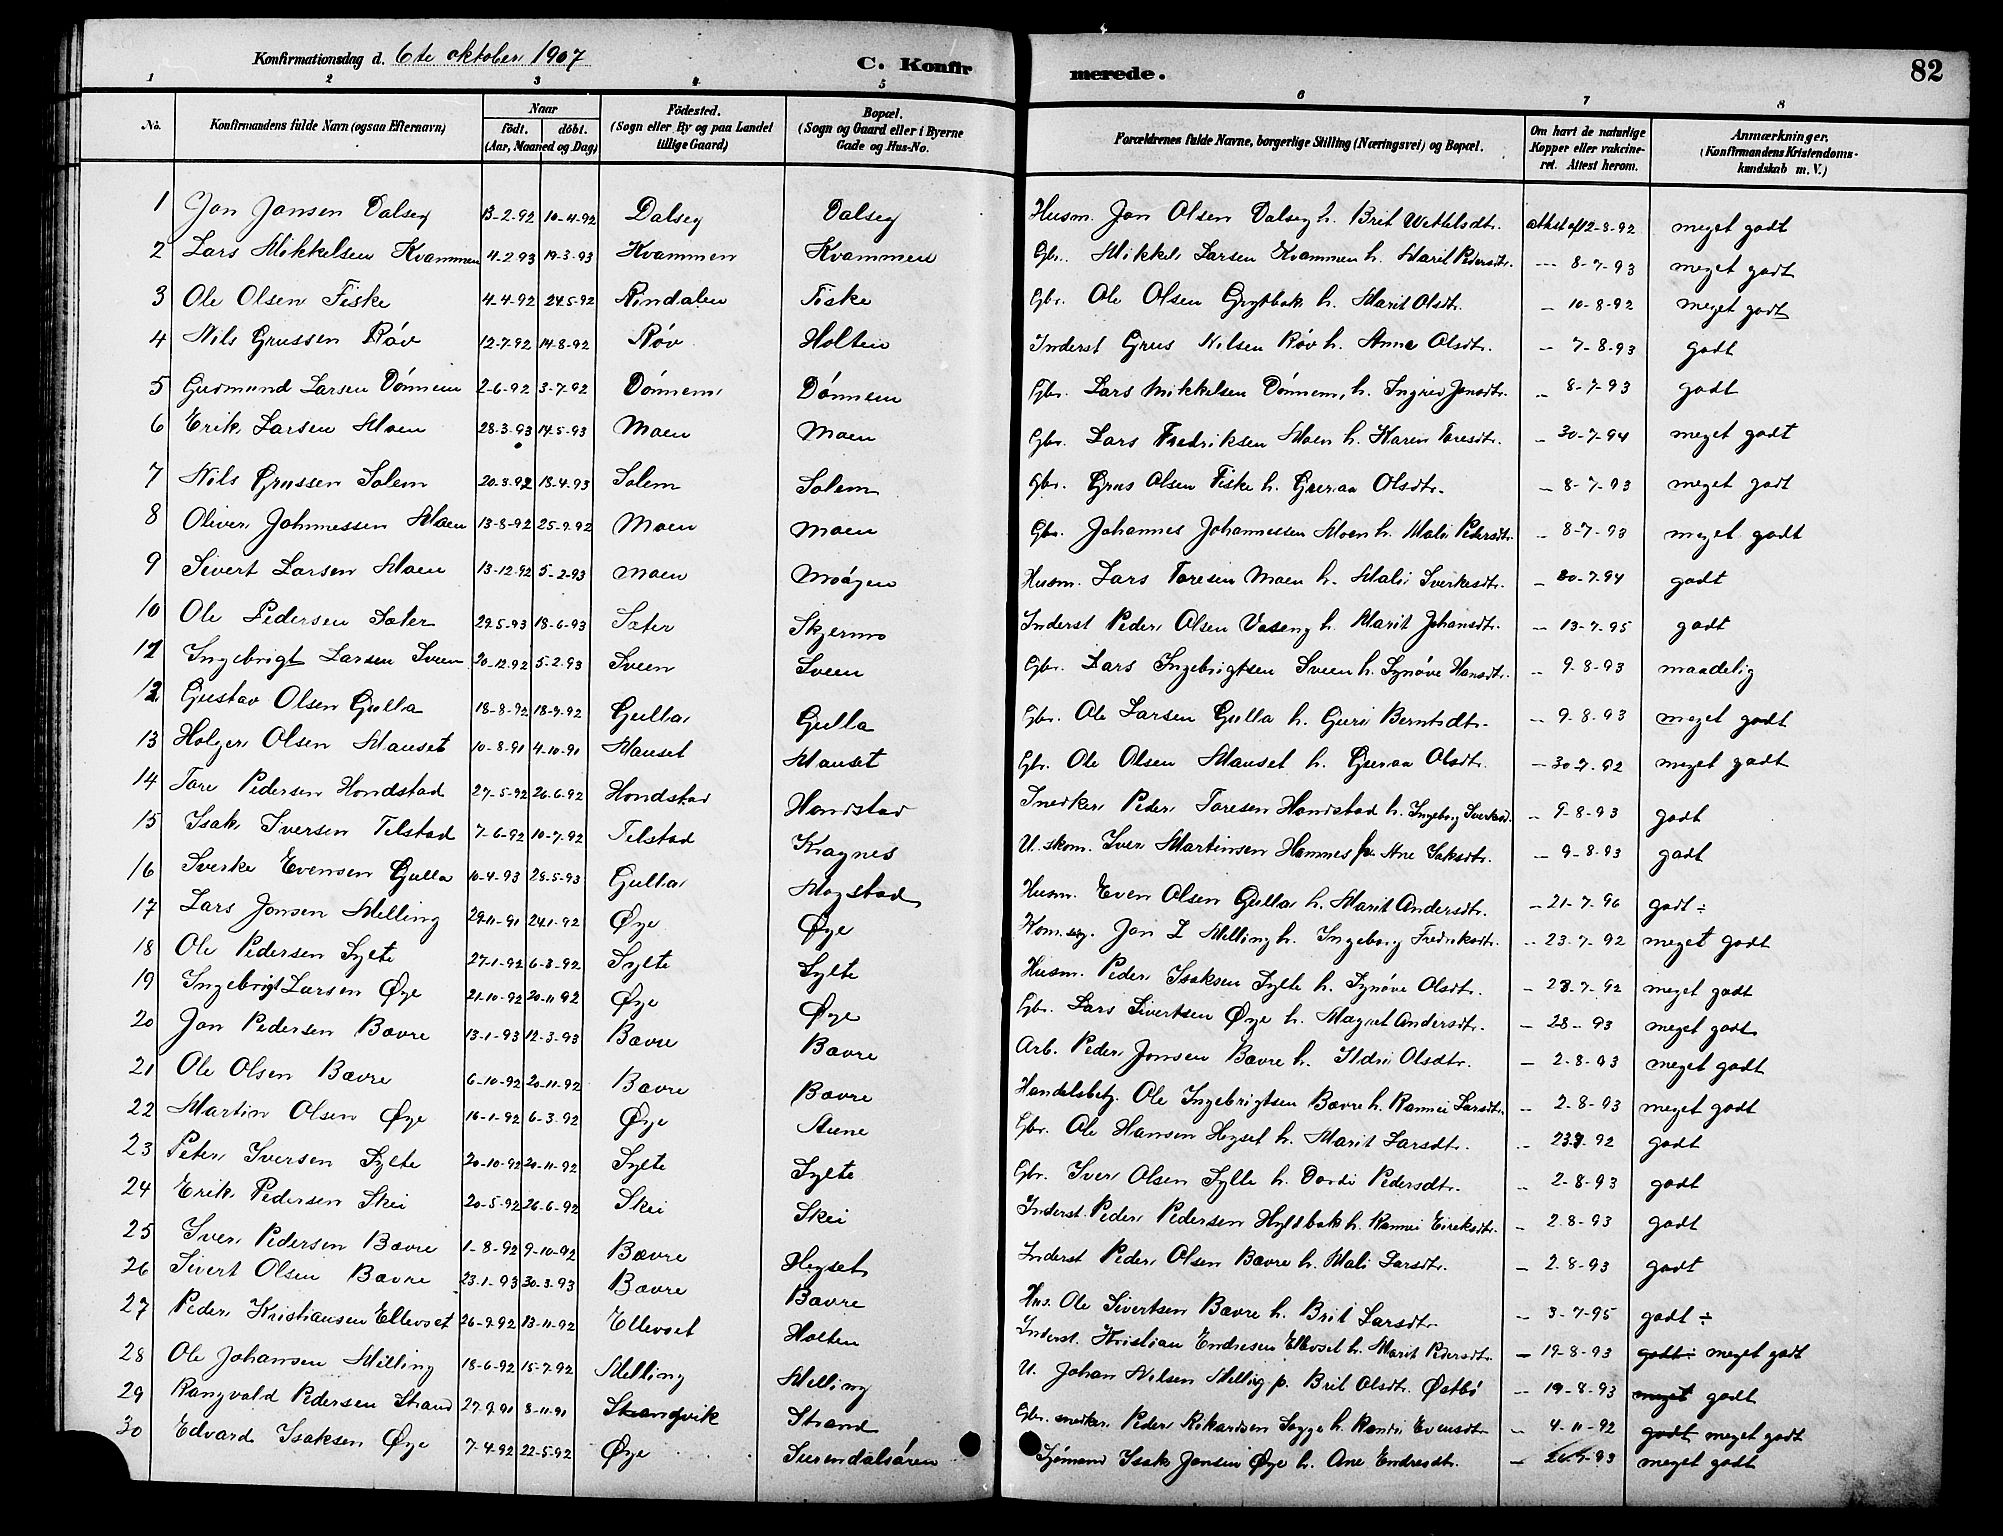 Konfirmationsdag d. 6te oktober 1907
C. Konfirmerede.
82
1 2 3 4 5 6 7 8
No.
Konfirmandens fulde Navn (ogsaa Efternavn)
Naar født. døbt. (Aar, Maaned og Dag)
Födested. (Sogn eller By og paa Landet tillige Gaard)
Bopæl. (Sogn og Gaard eller i Byerne Gade og Hus-No.
Forældrenes fulde Navne, borgerlige Stilling (Næringsvei) og Bopæl.
Om havt de naturlige Kopper eller vakcineret. Attest herom.
Anmærkninger. (Konfirmandens Kristendomskundskab m. V.)
1 Jon Jonsen Dalseg 13-2-92 10-4-92 Dalseg Dalseg Husm. Jon Olsen Dalseg h. Brit attest af 12-8-92 meget godt
2 Lars Mikkelsen Kvammen 4-2-93 19-3-93 Kvammen Kvammen Gbr. Mikkel Larsen Kvammen h. Marit Pedersdtr. - 8-7-93 meget godt
3 Ole Olsen Fiske 4-4-92 24-5-92 Rindalen Fiske Gbr. Ole Olsen Grytbak h. Marit Olsdtr. - 10-8-92 meget godt
4 Nils Grussen Røv 12-7-92 14-8-92 Røv Holten Inderst Grus Nilsen Røv h. Anne Olsdtr. - 7-8-93 godt
5 Gudmund Larsen Dønnem 2-6-92 3-7-92 Dønnem Dønnem Gbr. Lars Mikkelsen Dønnem, h. Ingrid Jonsdtr. - 8-7-93 godt
6 Erik Larsen Moen 28-3-93 14-5-93 Moen Moen Gbr. Lars Fredriksen Moen h. Karen Toresdtr. - 30-7-94 meget godt
7 Nils Grussen Solem 20-3-92 18-4-93 Solem Solem Gbr. Grus Olsen Fiske h. Guroa Olsdtr. - 8-7-93 meget godt
8 Oliver Johannessen Moen 13-8-92 25-9-92 Moen Moen Gbr. Johannes Johannessen Moen h. Mali Pedersdtr. - 8-7-93 meget godt
9 Sivert Larsen Moen 13-12-92 5-2-93 Moen Moøgen Husm. Lars Toresen Moen h. Mali Sverkesdtr. - 30-7-94 godt
10 Ole Pedersen Sæter 29-5-93 18-6-93 Sæter Skjermo Inderst Peder Olsen Vaseng h. Marit Johansdtr. - 13-7-95 godt
11 Ingebrigt Larsen Sveen 20-12-92 5-2-93 Sveen Sveen Gbr. Lars Ingebrigtsen Sveen h. Synøve Hansdtr. - 9-8-93 maadelig
12 Gustav Olsen Gulla 18-8-92 18-9-92 Gulla Gulla Gbr. Ole Larsen Gulla h. Guri Berntsdtr. - 9-8-93 meget godt
13 Holger Olsen Mauset 10-8-91 4-10-91 Mauset Mauset Gbr. Ole Olsen Mauset h. Guroa Olsdtr. - 30-7-92 meget godt
14 Tore Pedersen Hondstad 27-5-92 26-6-92 Hondstad Hondstad Snedker Peder Toresen Hondstad h. Ingeborg Sverkesd. - 9-8-93 godt
15 Isak Iversen Telstad 7-6-92 10-7-92 Telstad Kragnes U. skom. Iver Martinsen Hamnes p. Ane Isaksdtr. - 9-8-93 godt
16 Sverke Evensen Gulla 10-4-93 28-5-93 Gulla Mogstad Husm. Even Olsen Gulla h. Marit Andersdtr. - 21-7-96 godt ÷
17 Lars Jonsen Melling 29-11-91 24-1-92 Øye Øye Jon L Melling h. Ingeborg Fredriksdtr. - 23-7-92 meget godt
18 Ole Pedersen Sylte 27-1-92 6-3-92 Sylte Sylte Husm. Peder Isaksen Sylte h. Synøve Olsdtr. - 23-7-92 meget godt
19 Ingebrigt Larsen Øye 21-10-92 20-11-92 Øye Øye Gbr. Lars Sivertsen Øye h. Magret Andersdtr. - 28- 93 meget godt
20 Jon Pedersen Bævre 13-1-93 12-3-93 Bævre Bævre Arb. Peder Jonsen Bævre h. Ildri Olsdtr. - 2-8-93 meget godt
21 Ole Olsen Bævre 6-10-92 20-11-92 Bævre Bævre Handelsbetj. Ole Ingebrigtsen Bævre h. Rannei Larsdtr. - 2-8-93 meget godt
22 Martin Olsen Øye 16-1-92 6-3-92 Øye Aune Gbr. Ole Hansen Heyset h. Marit Larsdtr. - 23-7-92 godt
23 Peter Iversen Sylte 20-10-92 20-11-92 Sylte Sylte Gbr. Iver Olsen Sylte h. Dordi Pedersdtr. - 2-8-93 godt
24 Erik Pedersen Skei 20-5-92 26-6-92 Skei Skei Inderst Peder Pedersen Hyldbak h. Rannei Eireksdtr. - 2-8-93 godt
25 Iver Pedersen Bævre 1-8-92 9-10-92 Bævre Heyset Inderst Peder Olsen Bævre h. Mali Larsdtr. - 2-8-93 godt
26 Sivert Olsen Bævre 23-1-93 30-3-93 Bævre Bævre Hus. Ole Sivertsen Bævre h. Brit Larsdtr. - 3-7-95 godt ÷
27 Peder Kristiansen Ellevset 26-9-92 13-11-92 Ellevset Holten Inderst. Kristian Endresen Ellevset h. Marit Pedersdtr. - 19-8-93 godt ÷ meget godt
28 Ole Johansen Melling 18-6-92 15-7-92 Melling Melling U. Johan Nilsen Melling p. Brit Olsdtr. Østbø - 19-8-93 meget godt
29 Rangvald Pedersen Strand 27-9-91 8-11-91 Strandvik Strand Gbr. snedker Peder Rikardsen Sogge h. Randi Evensdtr. - 4-11-92 godt meget godt
30 Edvard Isaksen Øye 7-4-92 22-5-92 Øye Surendalsøren Sjømand Isak Jonsen Øye h. Ane Endresdtr. - meget godt